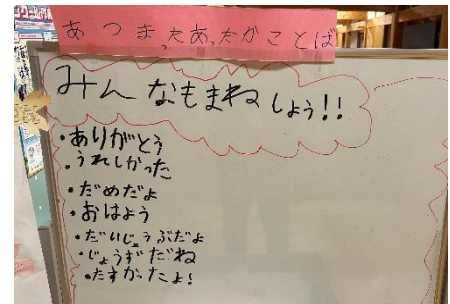 あつまったあったかことば
みんなもまねしよう!!
・ありがとう
・うれしかった
・だめだよ
・おはよう
・だいじょうぶだよ
・じょうずだね
・たすかったよ!